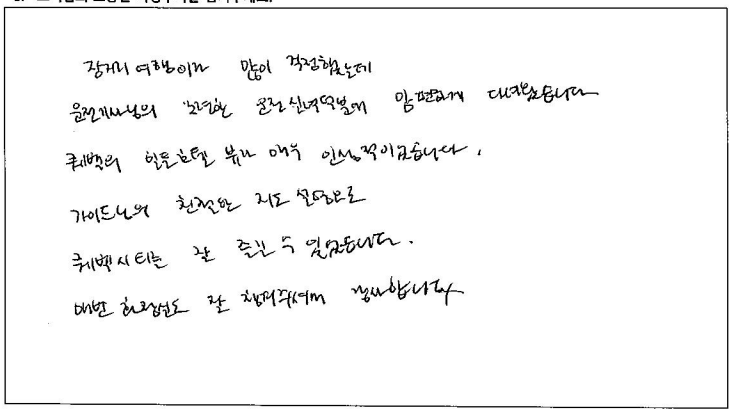 장거리 여행이라 많이 걱정했는데
운전기사님의 노련한 운전 덕분에 맘 편하게 다녀왔습니다
퀘벡의 힐튼호텔 뷰가 매우 인상적이었습니다.
가이드님의 친절한 지도 설명으로
퀘벡시티를 잘 즐길 수 있었습니다.
매번 화장실도 잘 챙겨주셔서 감사합니다